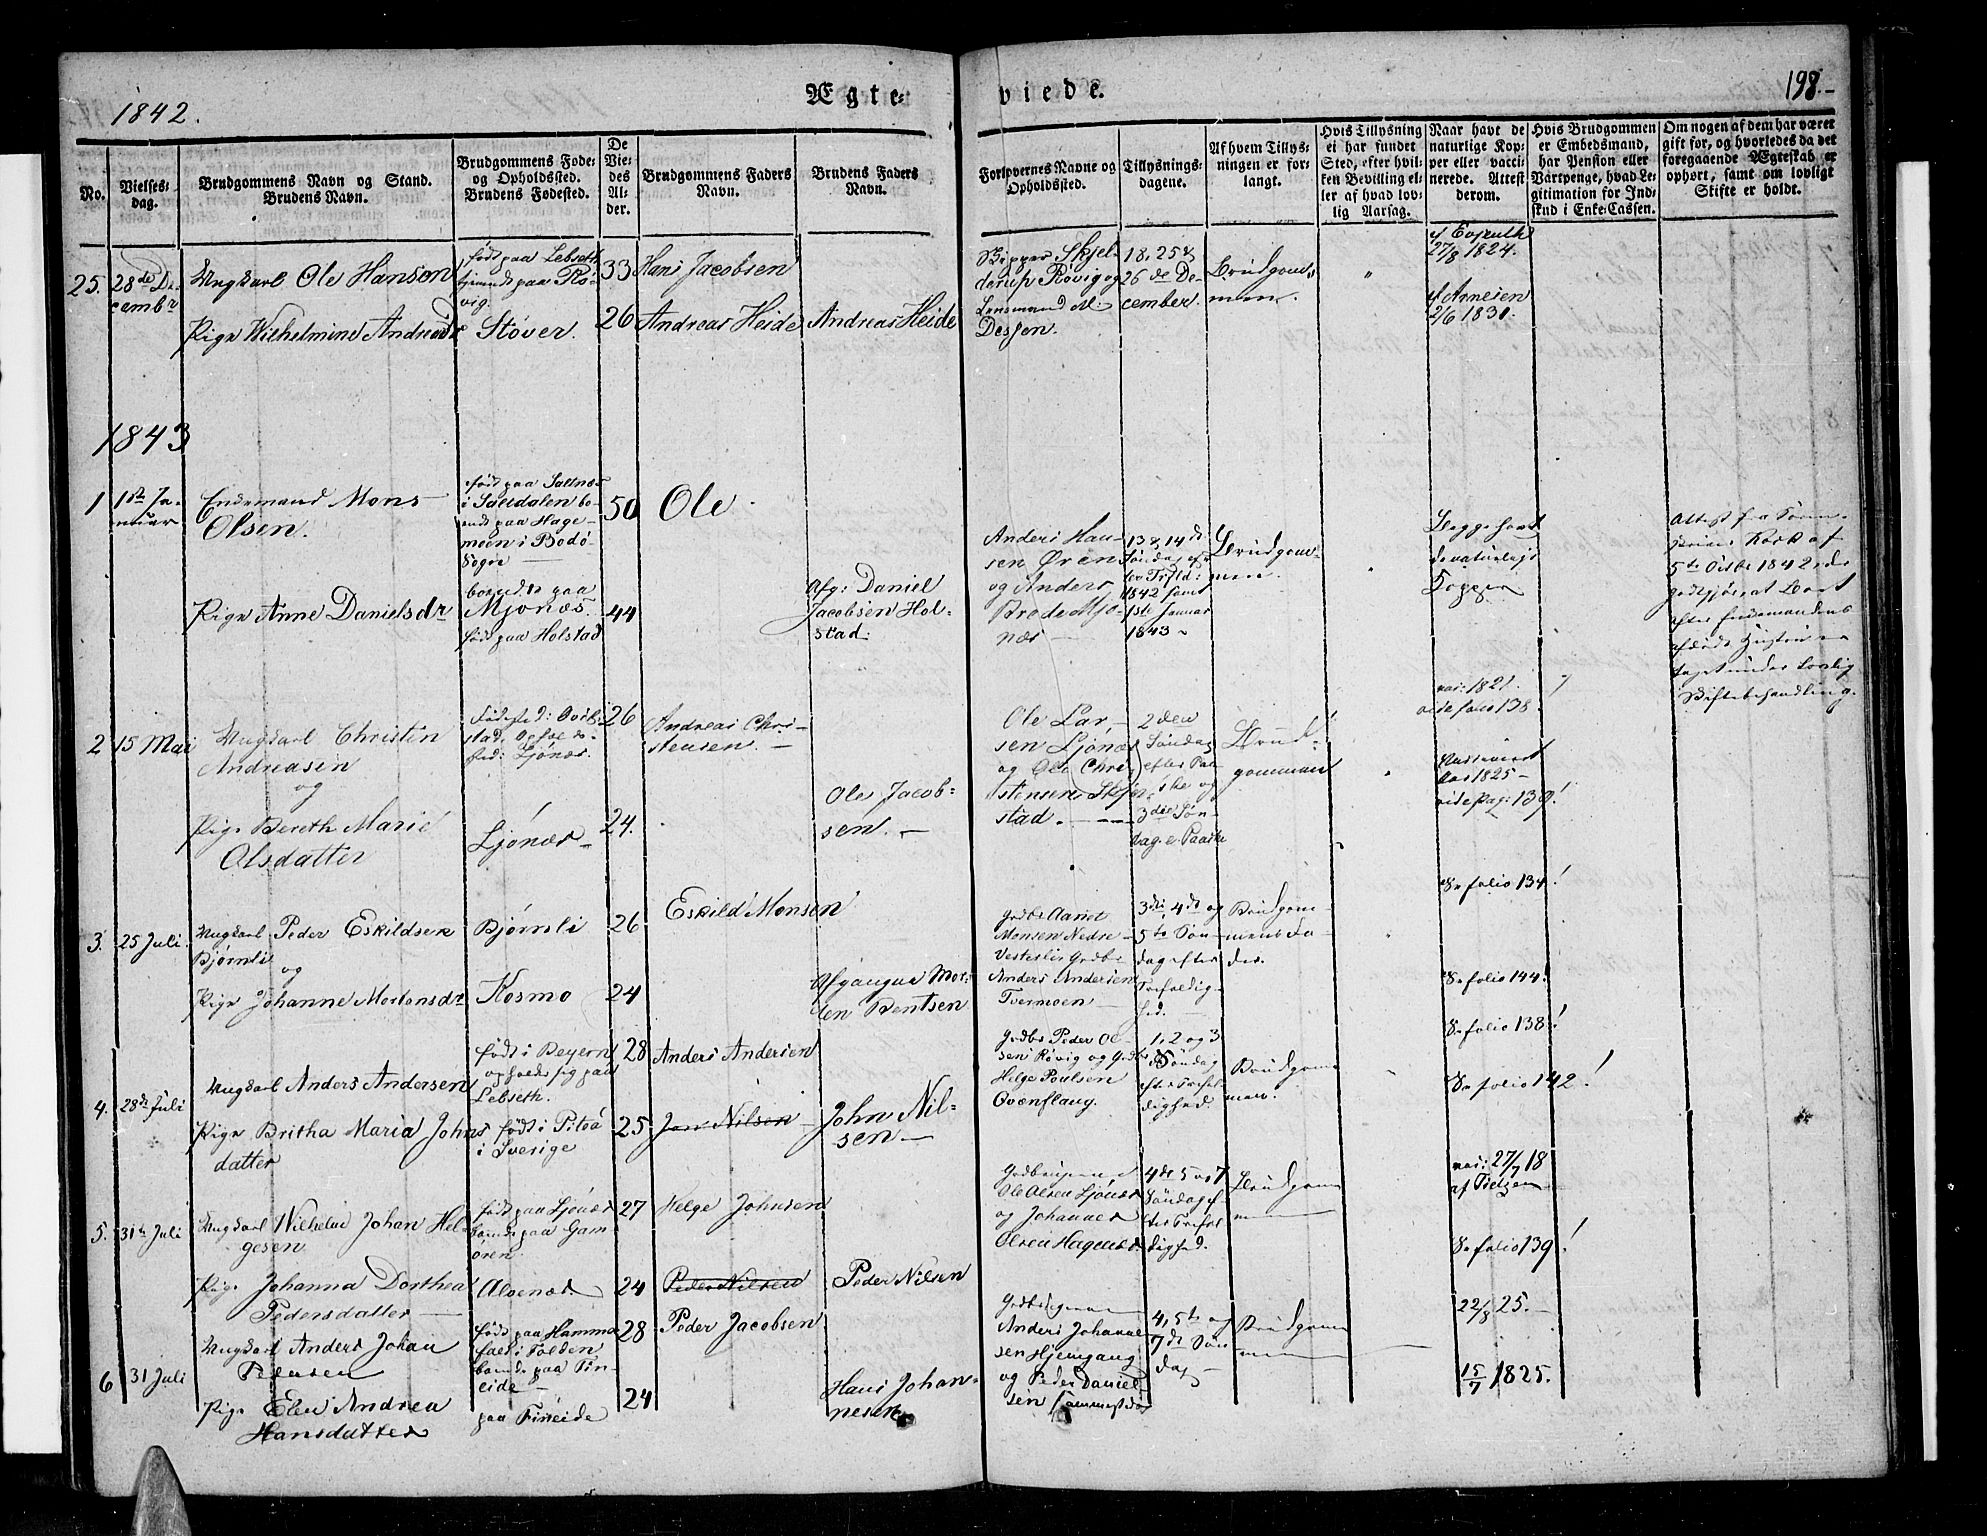 1842.
Ægte-
viede.
198.
No.
Vielses-
dag.
Brudgommens Navn og Stand.
Brudens Navn.
Brudgommens Føde-
og Opholdssted.
Brudens Fødested.
De
Vie-
des
Al-
der.
Brudgommens Faders
Navn.
Brudens Faders
Navn.
Forlovernes Navne og
Opholdssted.
Tillysnings-
dagene.
Af hvem Tillys-
ningen er for-
langt.
Hvis Tillysning
ei har fundet
Sted, efter hvil-
ken Bevilling el-
ler af hvad lov-
lig Aarsag.
Naar havt de
naturlige Kop-
per eller vacci-
nerede. Attest
derom.
Hvis Brudgommen
er Embedsmand,
har Pension eller
Vartpenge, hvad Le-
gitimation for Ind-
skud i Enke-Cassen.
Om nogen af dem har været
gift for, og hvorledes da det
foregaaende Ægteskab er
ophørt, samt om lovligt
Skifte er holdt.
25.
28de De-
cembr
Ungkarl Ole Hansen
Pige Wilhelmine Andreasdr
født paa Lebseth
tjenende paa Rö-
vig.
Støver.
33
26
Hans Jacobsen
Andreas Heide
Andreas Heide
Skjel-
derup Rövig og
Lensmand
18, 25 &
26de De-
cember.
Brudgom-
men.
27/8 1824.
af Arnesen
2/6 1831.
1843
1
1ste Ja-
nuar
Enkemand Mons
Olsen.
Pige Anne Danielsdr
født paa Saltnæs
i Saltdalen bo-
ende paa Hage-
moen i Bodö-
Sogn
boende paa
Mjönæs.
født paa Holstad
50
44
Ole
Afg: Daniel
Jacobsen Hol-
stad.
Anders Han-
sen Ören
og Anders
Mjö-
næs
13 & 14de
Söndag ef-
ter Trfld:
1842 samt
1ste Januar
1843
Brudgom-
men.
Begge havt
de naturlige
Kopper
Attest fra
af
5te Octbr 1842, at
godtgjör, at Boet
efter Enkemandens
afdøde Hustru er
taget under Lovlig
Skiftebehandling.
2
15 Mai
Ungkarl Christen
Andreasen
og
Pige Bereth Marie
Olsdatter
Fødested:
stad. Ophol ds-
sted: Ljönæs.
Ljönæs
26
24.
Andreas Chri-
stensen.
Ole Jacob-
sen.
Ole Lar-
sen Ljönæs
og Ole Chri-
stensen Skjer-
stad.
2den
Söndag
efter Paa-
ske og
3die Sön-
dag e. Paaske
Brud-
gommen
vac: 1821.
vide folio 138.
Vaccineret
1825
vide Pag: 139!
3.
25 Juli
Ungkarl Peder Eskildsen
Bjørnli
og
Pige Johanne Mortensdr
Bjørnli
Kosmo
26
24
Eskild Monsen
Afgangne Mor-
ten Bentsen
Grdbr Aamot
Monsen Nedre
Vesterli & Grdbr
Anders Andersen
Tvermoen
3die, 4de og
5te Sön-
dag efter
Trefoldig-
hed.
Brudgom-
mens Fa-
der.
Se folio 134!
Se folio 144!
4.
28de Juli
Ungkarl Anders Andersen
Pige Britha Maria Johns
datter
født i Beyern
opholdt sig paa
Lebseth.
født i Piteå
i Sverige
28
25
Anders Andersen
Jon Nilsen
John Nil-
sen
Grdbr Peder Ol-
sen Rövig og Grdbr
Helge Poulsen
Qvænflaug.
1, 2 og 3
Söndag
efter Trefol-
dighed.
Brudgom-
men.
Se folio 138!
Se folio 142!
5.
31te Juli
Ungkarl Wilhelm Johan Hel-
gesen
Pige Johanna Dorthea
Pedersdatter
født paa Ljönæs
boende paa Gam-
ören.
Alvenæs
27
24
Helge Johnsen
Peder Nilsen
Peder Nilsen
Gaardbrugerne
Ole Olsen Ljönæs
og Johannes
Olsen Hagenæs.
4de 5 og 7
Söndag ef-
ter Trefol-
dighed.
Brudgom
m
vac: 27/7 18
af Tietzen
Se folio 139!
6
31 Juli
Ungkarl Anders Johan
Pedersen
Pige Elen Andrea
Hansdatter
født paa Hamma-
fald i Folden
boende paa Fin-
eide
paa Fineide
28
24
Peder Jacobsen
Hans Johan-
nesen
Gaardbrugerne
Anders Johanne-
sen Hjemgang
og Peder Daniel-
sen
4, 5te og
7de Sön
dag
Brudgom
m
22/8 25.
15/7 1825.